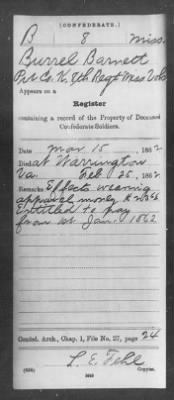 (CONFEDERATE.)
B 8 Miss.
Burrel Barnett
Pvt Co. K, 8th Regt Miss Vols
Appears on a
Register
containing a record of the Property of Deceased
Confederate Soldiers.
Date Mar 15, 1862
Died at Warrington
Va. Feb 25, 1862
Remarks Effects wearing
apparel money
Entitled to pay
from 1st Jan. 1862
Confed. Arch., Chap. 1, File No. 27, page 24
L. E. Fehl
Copyist.